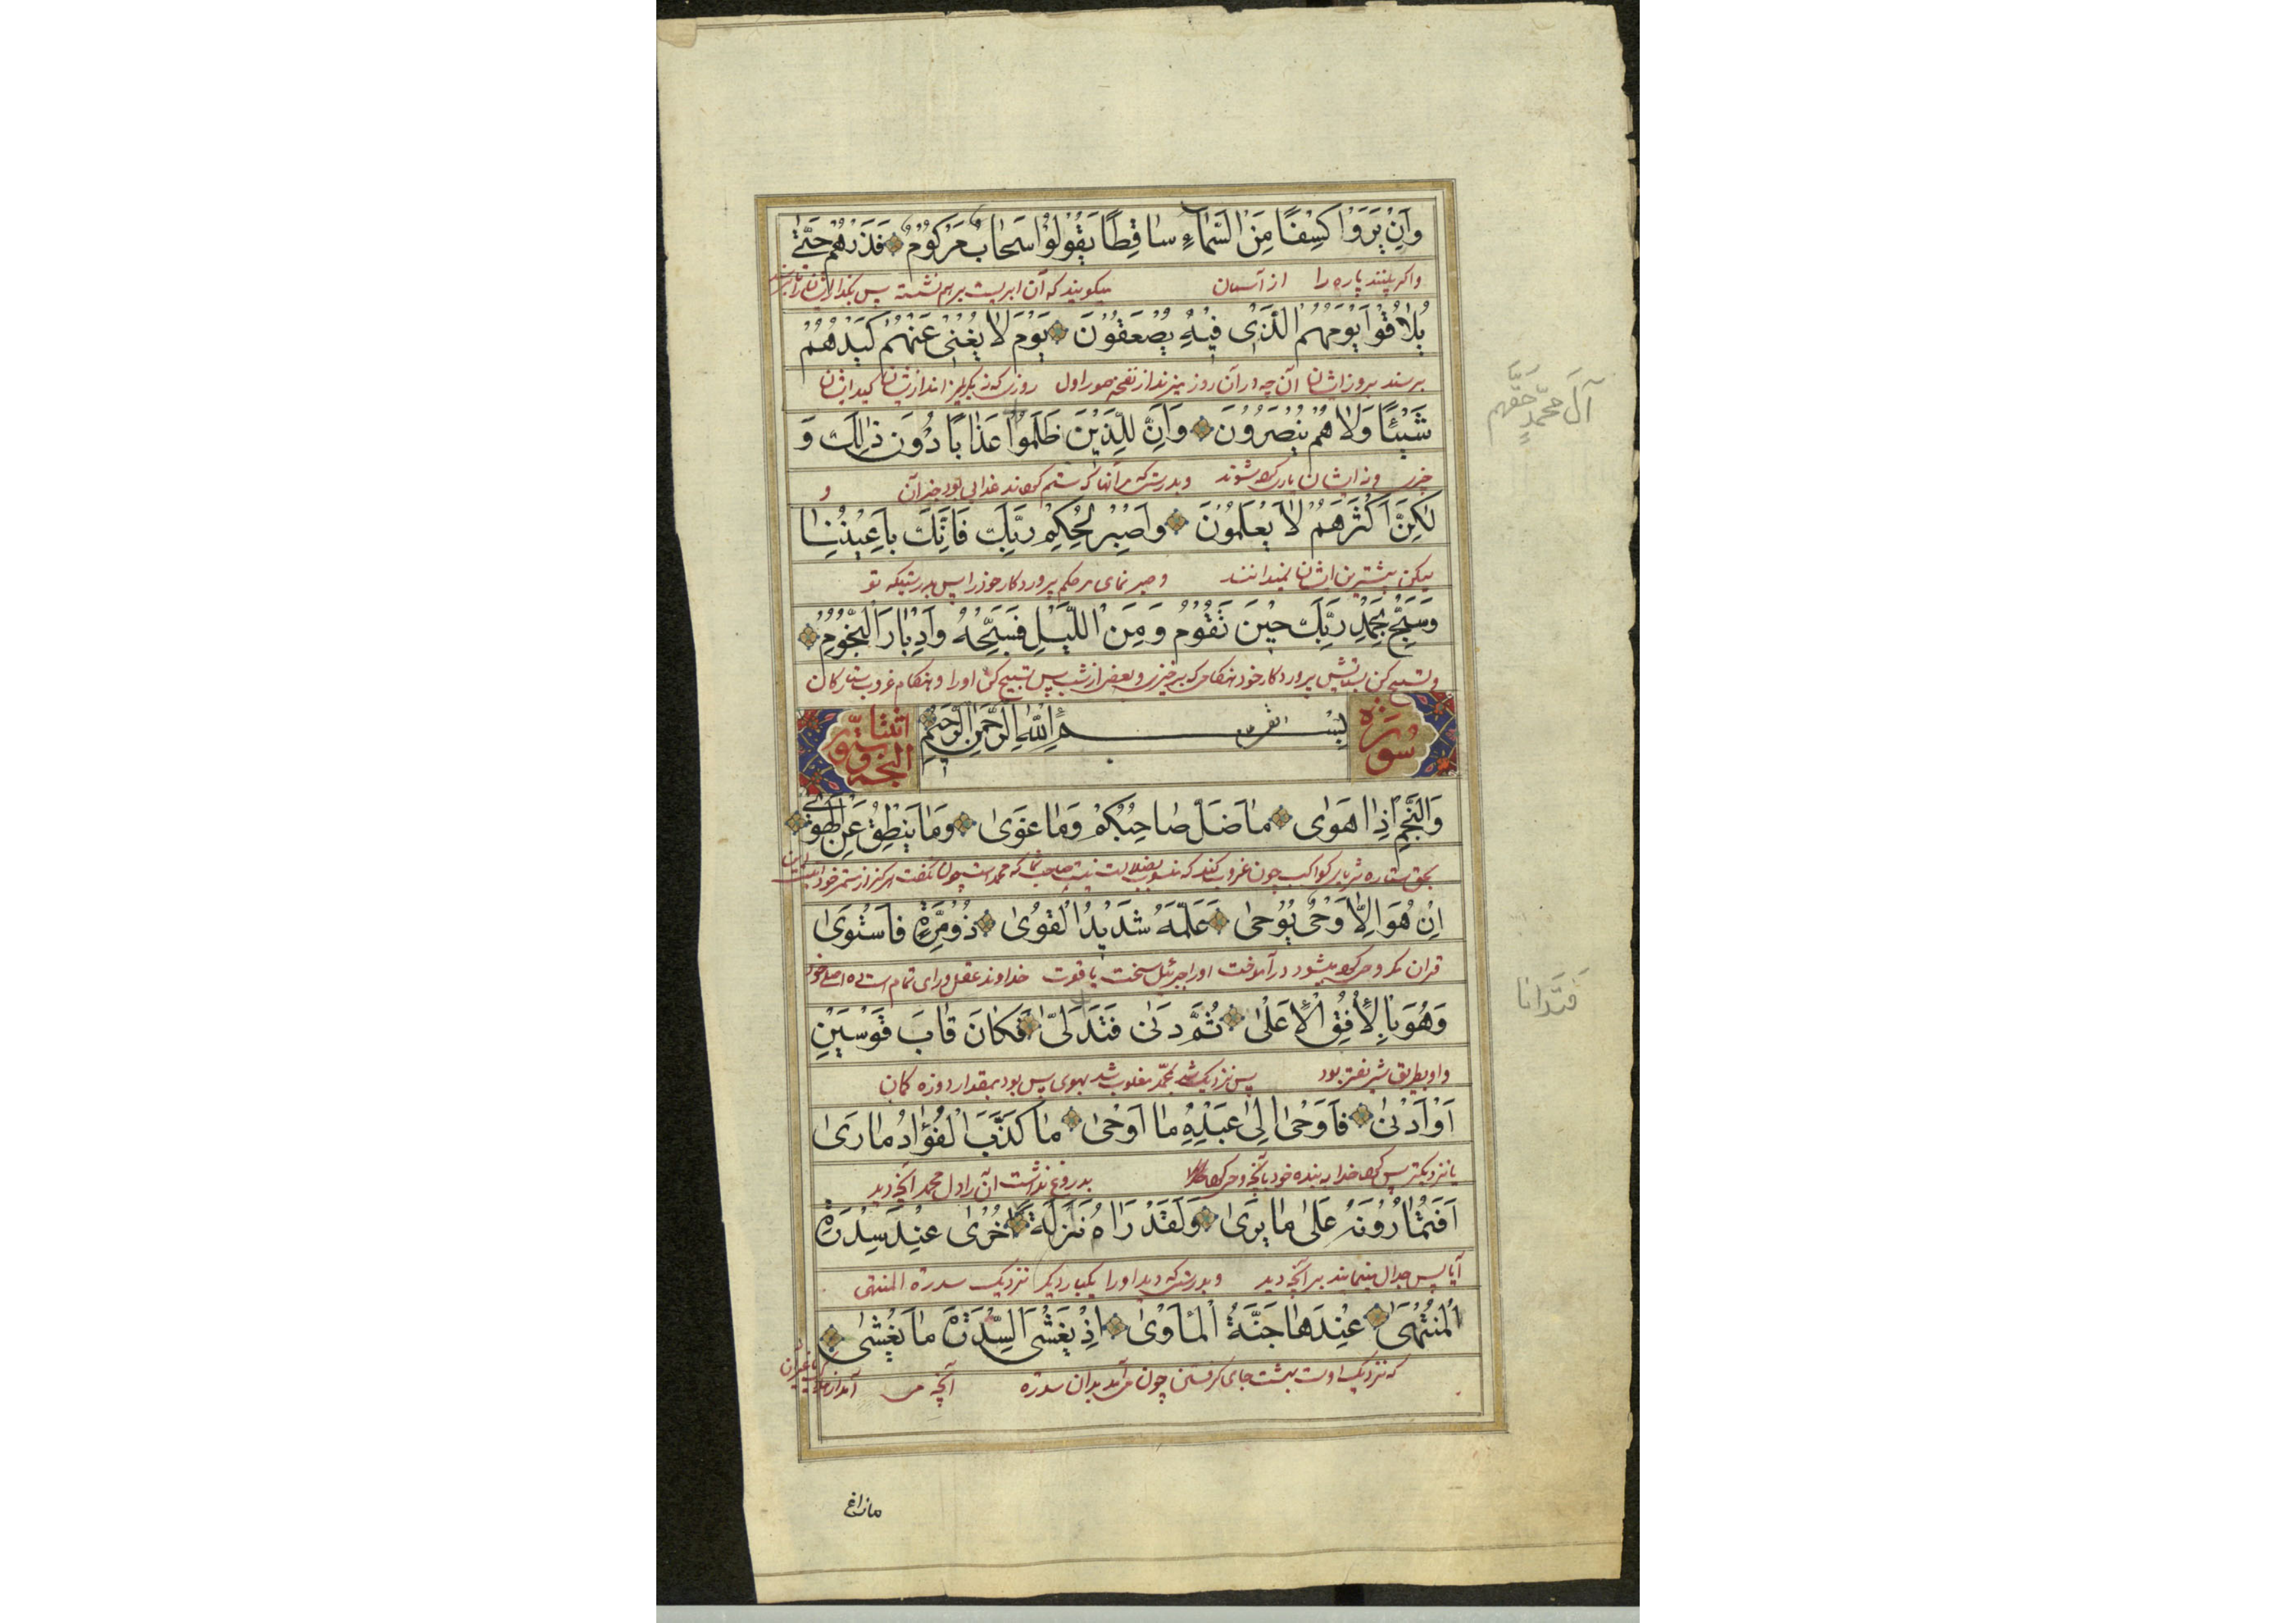 وَاِنْ يَرَوْا كِسْفًا مِنَ السَّمَاءِ سَاقِطًا يَقُولُوا سَحَابٌ مَرْكُومٌ فَذَرْهُمْ حَتّٰى
واگر بینند پاره را از آسمان میگویند که آن ابریست برهم نشسته پس
يُلَاقُوا يَوْمَهُمُ الَّذٖى فٖيهِ يُصْعَقُونَ يَوْمَ لَا يُغْنٖى عَنْهُمْ كَيْدُهُمْ
برسند بروز ایشان آن چه در آن روز از نفخه صور اول روزی که کید ایشان
آلَ مُحَمَّدٍ حَقَّهُمْ
شَيْئًا وَلَا هُمْ يُنْصَرُونَ وَاِنَّ لِلَّذٖينَ ظَلَمُوا عَذَابًا دُونَ ذٰلِكَ وَ
ونه ایشان یاری کرده شوند و بدرستی که مر آنها که ستم کرده‌اند عذابی بود جز آن و
لٰكِنَّ اَكْثَرَهُمْ لَا يَعْلَمُونَ وَاصْبِرْ لِحُكْمِ رَبِّكَ فَاِنَّكَ بِاَعْيُنِنَا
لیکن بیشترین ایشان نمیدانند و صبر نمای مر حکم پروردکار خود را پس بدرستیکه تو
وَسَبِّحْ بِحَمْدِ رَبِّكَ حٖينَ تَقُومُ وَمِنَ اللَّيْلِ فَسَبِّحْهُ وَاِدْبَارَ النُّجُومِ
و تسبیح کن بستایش پروردکار خود هنکامی که برخیزی و بعضی از شب پس تسبیح کن او را و هنکام غروب ستارکان
سُورَة
بِسْمِ اللّٰهِ الرَّحْمٰنِ الرَّحٖيمِ
النجم اثنتا وستون
وَالنَّجْمِ اِذَا هَوٰى مَا ضَلَّ صَاحِبُكُمْ وَمَا غَوٰى وَمَا يَنْطِقُ عَنِ الْهَوٰى
بحق ستاره ثریا یا کواکب چون غروب کند که صاحب شما که محمد است
اِنْ هُوَ اِلَّا وَحْىٌ يُوحٰى عَلَّمَهُ شَدٖيدُ الْقُوٰى ذُو مِرَّةٍ فَاسْتَوٰى
قرآن مکر وحی که میشود در آموخت او را جبرئیل سخت با قوت خداوند عقل و رای تمام
فَتَدَانَا
وَهُوَ بِالْاُفُقِ الْاَعْلٰى ثُمَّ دَنٰى فَتَدَلّٰى فَكَانَ قَابَ قَوْسَيْنِ
و او بطریق بود پس نزدیک شد بمحمد شد پس بود بمقدار دو زه کمان
اَوْ اَدْنٰى فَاَوْحٰى اِلٰى عَبْدِهٖ مَا اَوْحٰى مَا كَذَبَ الْفُؤَادُ مَا رَاٰى
یا نزدیکتر پس خدا به بنده خود بآنچه وحی کرد بدروغ نداشت آن را دل محمد آنچه دید
اَفَتُمَارُونَهُ عَلٰى مَا يَرٰى وَلَقَدْ رَاٰهُ نَزْلَةً اُخْرٰى عِنْدَ سِدْرَةِ
آیا پس جدال مینمایند بر آنچه دید و بدرستی که دید او را یکبار دیکر نزدیک سدرة المنتهی
الْمُنْتَهٰى عِنْدَهَا جَنَّةُ الْمَاْوٰى اِذْ يَغْشَى السِّدْرَةَ مَا يَغْشٰى
که نزدیک اوست بهشت جای کرفتن چون بدان سدره آنچه می آمد از
مازاغ